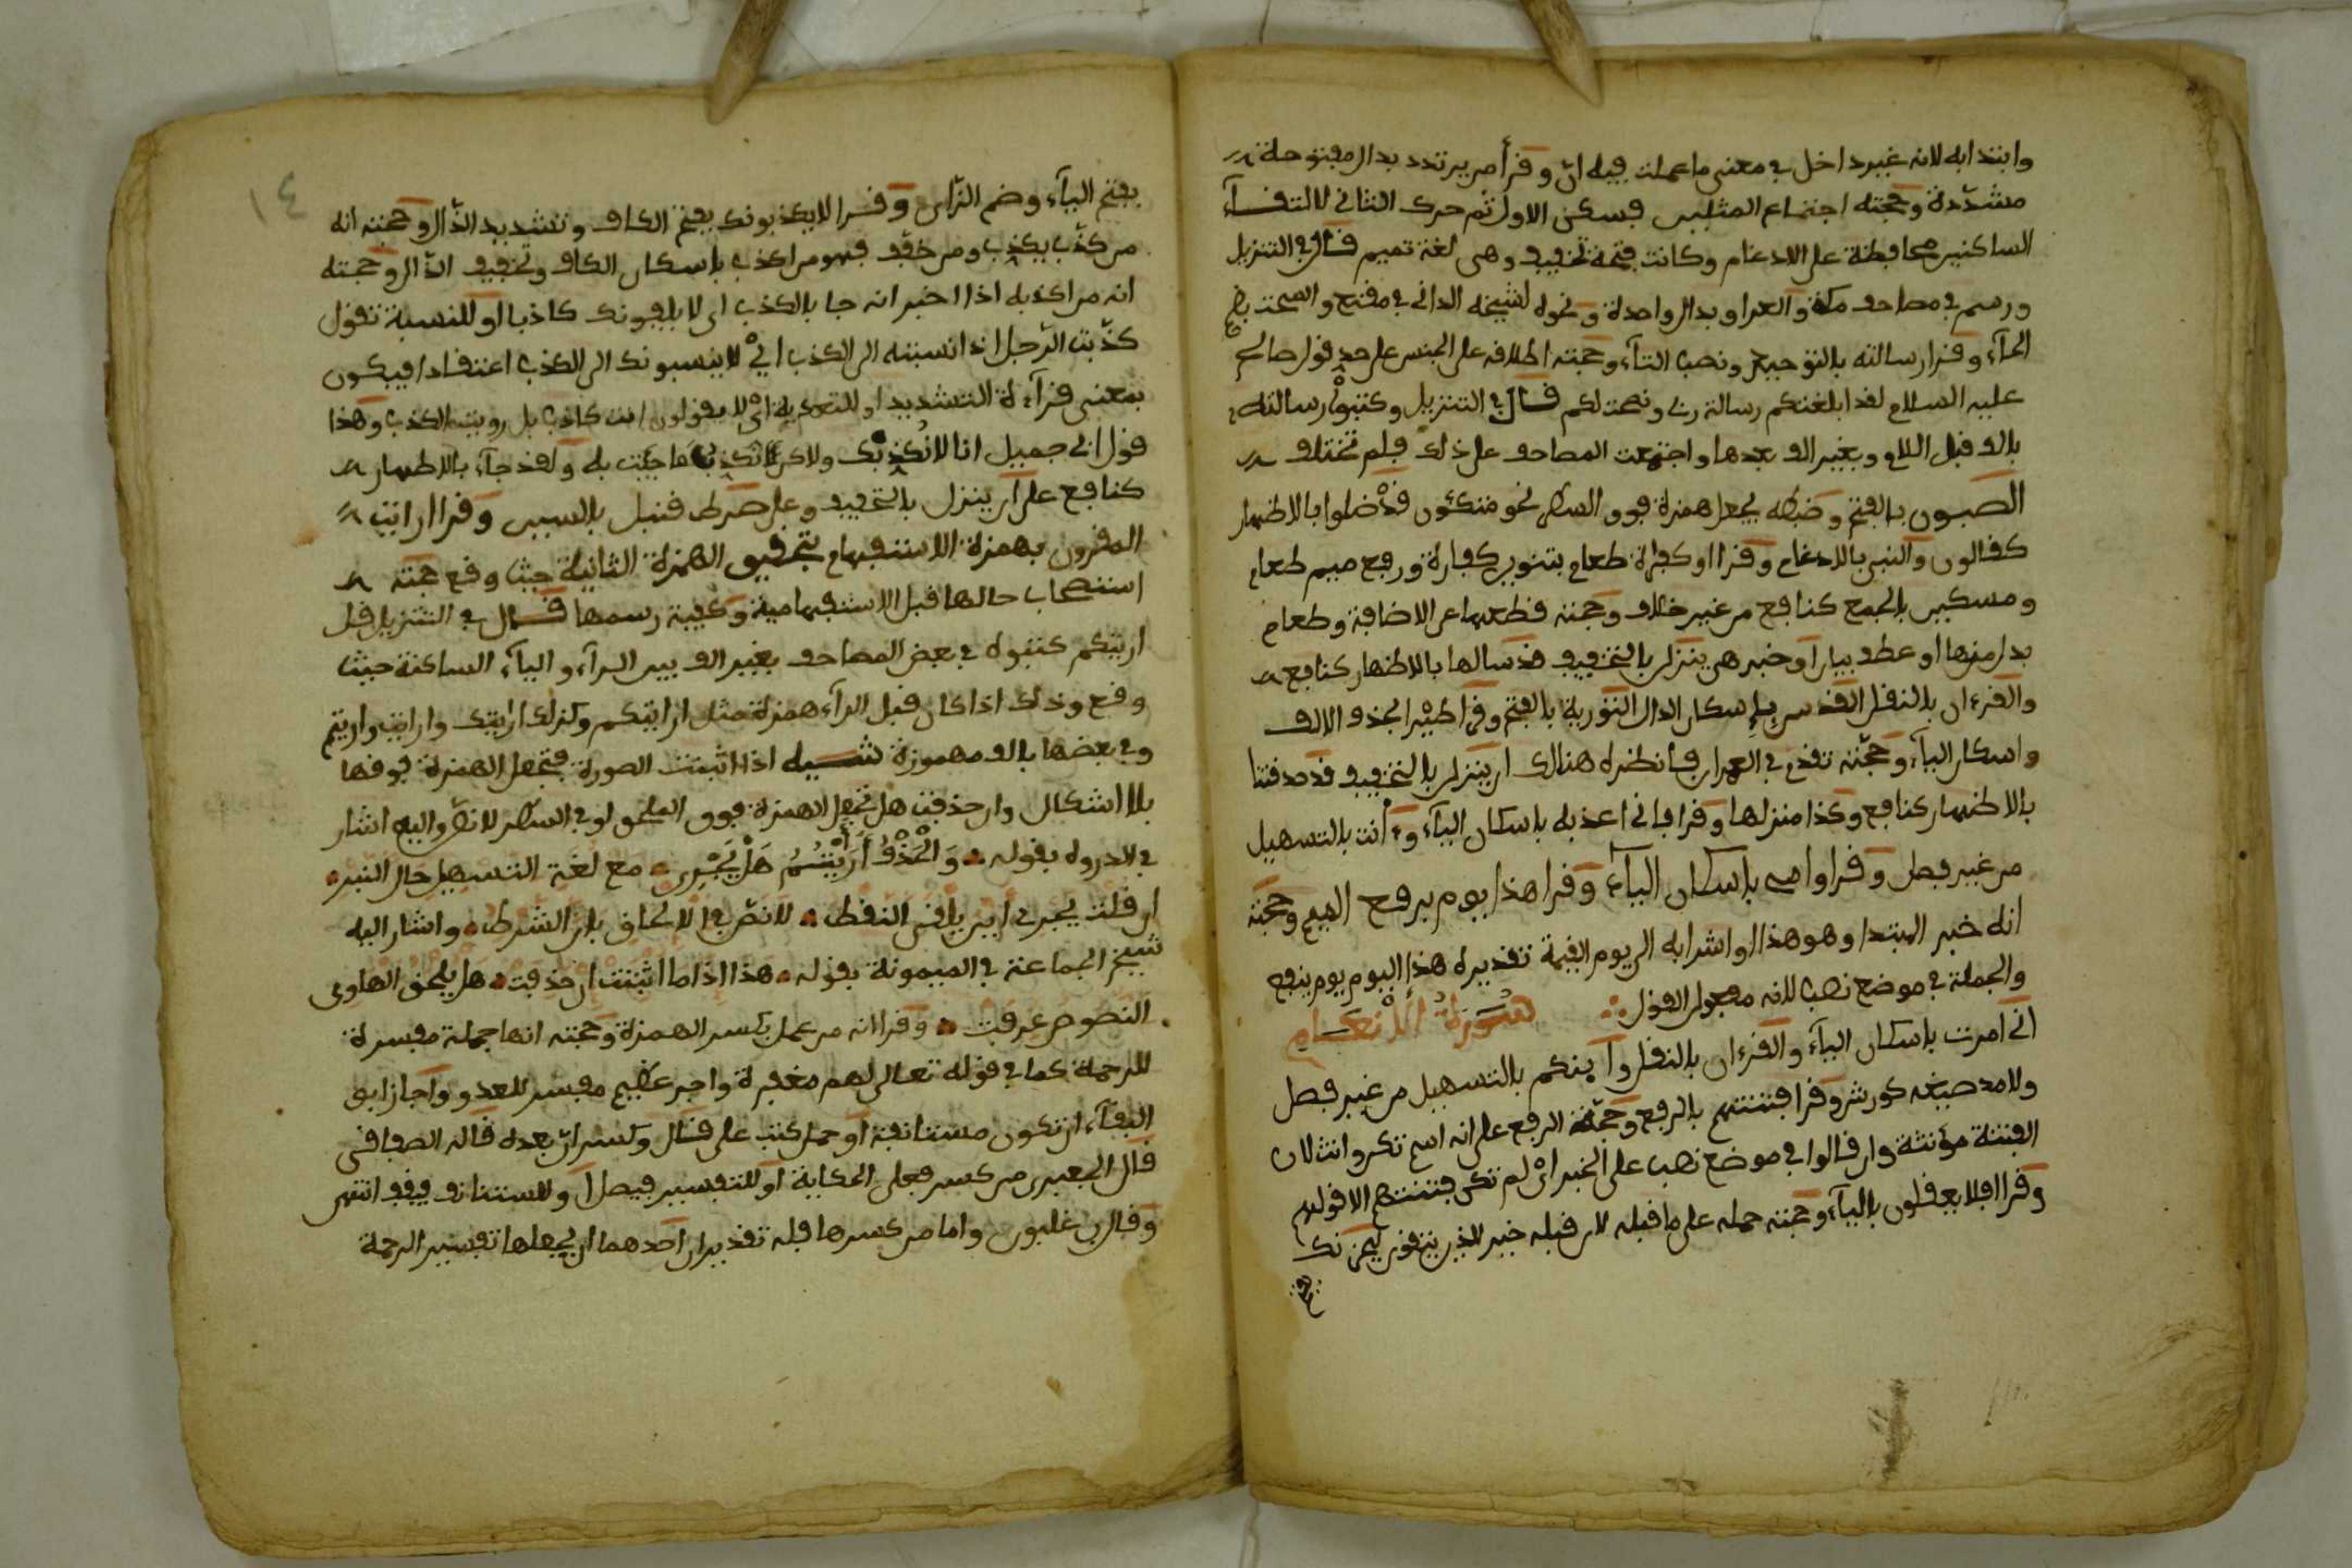 وابتدا به لانه غير داخل في معنى ما عملت فيه ان وقرأ من يرتدد بدال مفتوحة
مشددة وحجته اجتماع المثلين فسكن الاول ثم حرك الثاني لالتقاء
الساكنين محافظة على الادغام وكانت فتحة تخفيف وهي لغة تميم قال في التنزيل
ورسم في مصاحف مكة والعراق بدال واحدة ونحوه لشيخه الداني في مقنع والسحت بضم
الحاء وقرا رسالته بالتوحيد ونصب التاء وحجته اطلاقه على الجنس على حد قول صالح
عليه السلام لقد ابلغتكم رسالة ربي ونصحت لكم قال في التنزيل وكتبوا رسالته
بالف قبل اللام وبغير الف بعدها واجتمعت المصاحف على ذلك فلم تختلف
الصبون بالفتح وضبطه يجعل همزة فوق السطر نحو متكئون قد ضلوا بالاظهار
كقالون والنبي بالادغام وقرا او كفرة طعام بتنوين كفارة ورفع ميم طعام
ومسكين بالجمع كنافع من غير خلاف وحجته قطعها عن الاضافة وطعام
بدل منها او عطف بيان او خبر هي ينزل بالتخفيف قد سالها بالاظهار كنافع
والقرءان بالنقل القدس بإسكان الدال التورية بالفتح وفي اطيرا بحذف الالف
واسكان الياء وحجته تقدم في العمران فانظره هنالك ان ينزل بالتخفيف قد صدقتنا
بالاظهار كنافع وكذا منزلها وقرا فاني اعذبه باسكان الياء وءأنت بالتسهيل
من غير فصل وقرا وامي بإسكان الياء وقرا هذا يوم برفع الميم وحجته
انه خبر المبتدا وهو هذا او اشرابه الى يوم القيمة تقديره هذا اليوم يوم ينفع
والجملة في موضع نصب لانه مفعول القول سورة الانعام
اني امرت باسكان الياء والقرءان بالنقل وأينكم بالتسهيل من غير فصل
ولا مد صيغه كورش وقرا فتنتهم بالرفع وحجته الرفع على انه اسم تكن وانث لان
الفتنة مؤنثة وان قالوا في موضع نصب على الخبر اي لم تكن فتنتهم الا قولهم
وقرا افلا يعقلون بالياء وحجته حمله على ما قبله لان قبله خير للذين يتقون ليحزنك
بفتح
١٤
بفتح الياء وضم الزاي وقرا لا يكذبونك بفتح الكاف وتشديد الذال وحجته انه
من كذب يكذب ومن خفف فهو من اكذب باسكان الكاف وتخفيف الذال وحجته
انه من اكذبه اذا اخبر انه جا بالكذب اي لا يلفونك كاذبا او للنسبة تقول
كذبت الرجل اذا نسبته الى الكذب اي لا ينسبونك الى الكذب اعتقادا فيكون
بمعنى قراءة التشديد او للتعدية اي لا يقولون انت كاذب بل رويت الكذب وهذا
قول ابي جميل انا لا نكذبك ولاكن نكذب ما جئت به ولقد جاء بالاظهار
كنافع على ان ينزل بالتخفيف وعلى صرط قنبل بالسين وقرا ارايت
المقرون بهمزة الاستفهام بتحقيق الهمزة الثانية حيث وقع حجته
استصحاب حالها قبل الاستفهامية وكيفية رسمها قال في التنزيل قل
اريتكم كتبوه في بعض المصاحف بغير الف بين الراء والياء الساكنة حيث
وقع وذلك اذا كان قبل الراء همزة مثل ارايتكم وكذلك ارايتك وارايت واريتم
وفي بعضها بالف مهموزة تنبيه اذا اثبتت الصورة فتجعل الهمزة فوقها
بلا اشكال وان حذفت هل تجعل الهمزة فوق الملحق او في السطر لا نص واليه اشار
في الدرره بقوله والحذف أرأيتم هل يجري مع لغة التسهيل حال النبر
ان قلت يجري اين يافتى النقط لا نص في الالحاق بان الشرط واشار اليه
شيخ الجماعة في الميمونة بقوله هذا اذا ما اثبتت ان حذفت هل يلحق الهاوي
النصوص عرفت وقرا انه من عمل بكسر الهمزة وحجته انها جملة مفسرة
للرحمة كما في قوله تعالى لهم مغفرة واجر عظيم مفسر للعدو واجاز ابو
البقاء ان تكون مستانفة او حمل كتب على قال وكسر ان بعده قاله الصفاقسي
قال الجعبري من كسر فعلى الحكاية او للتفسير فيصل او للستئناف فيقف انتهى
وقال بن غلبون واما من كسرها فله تقديران احدهما ان يجعلها تفسير الرحمة